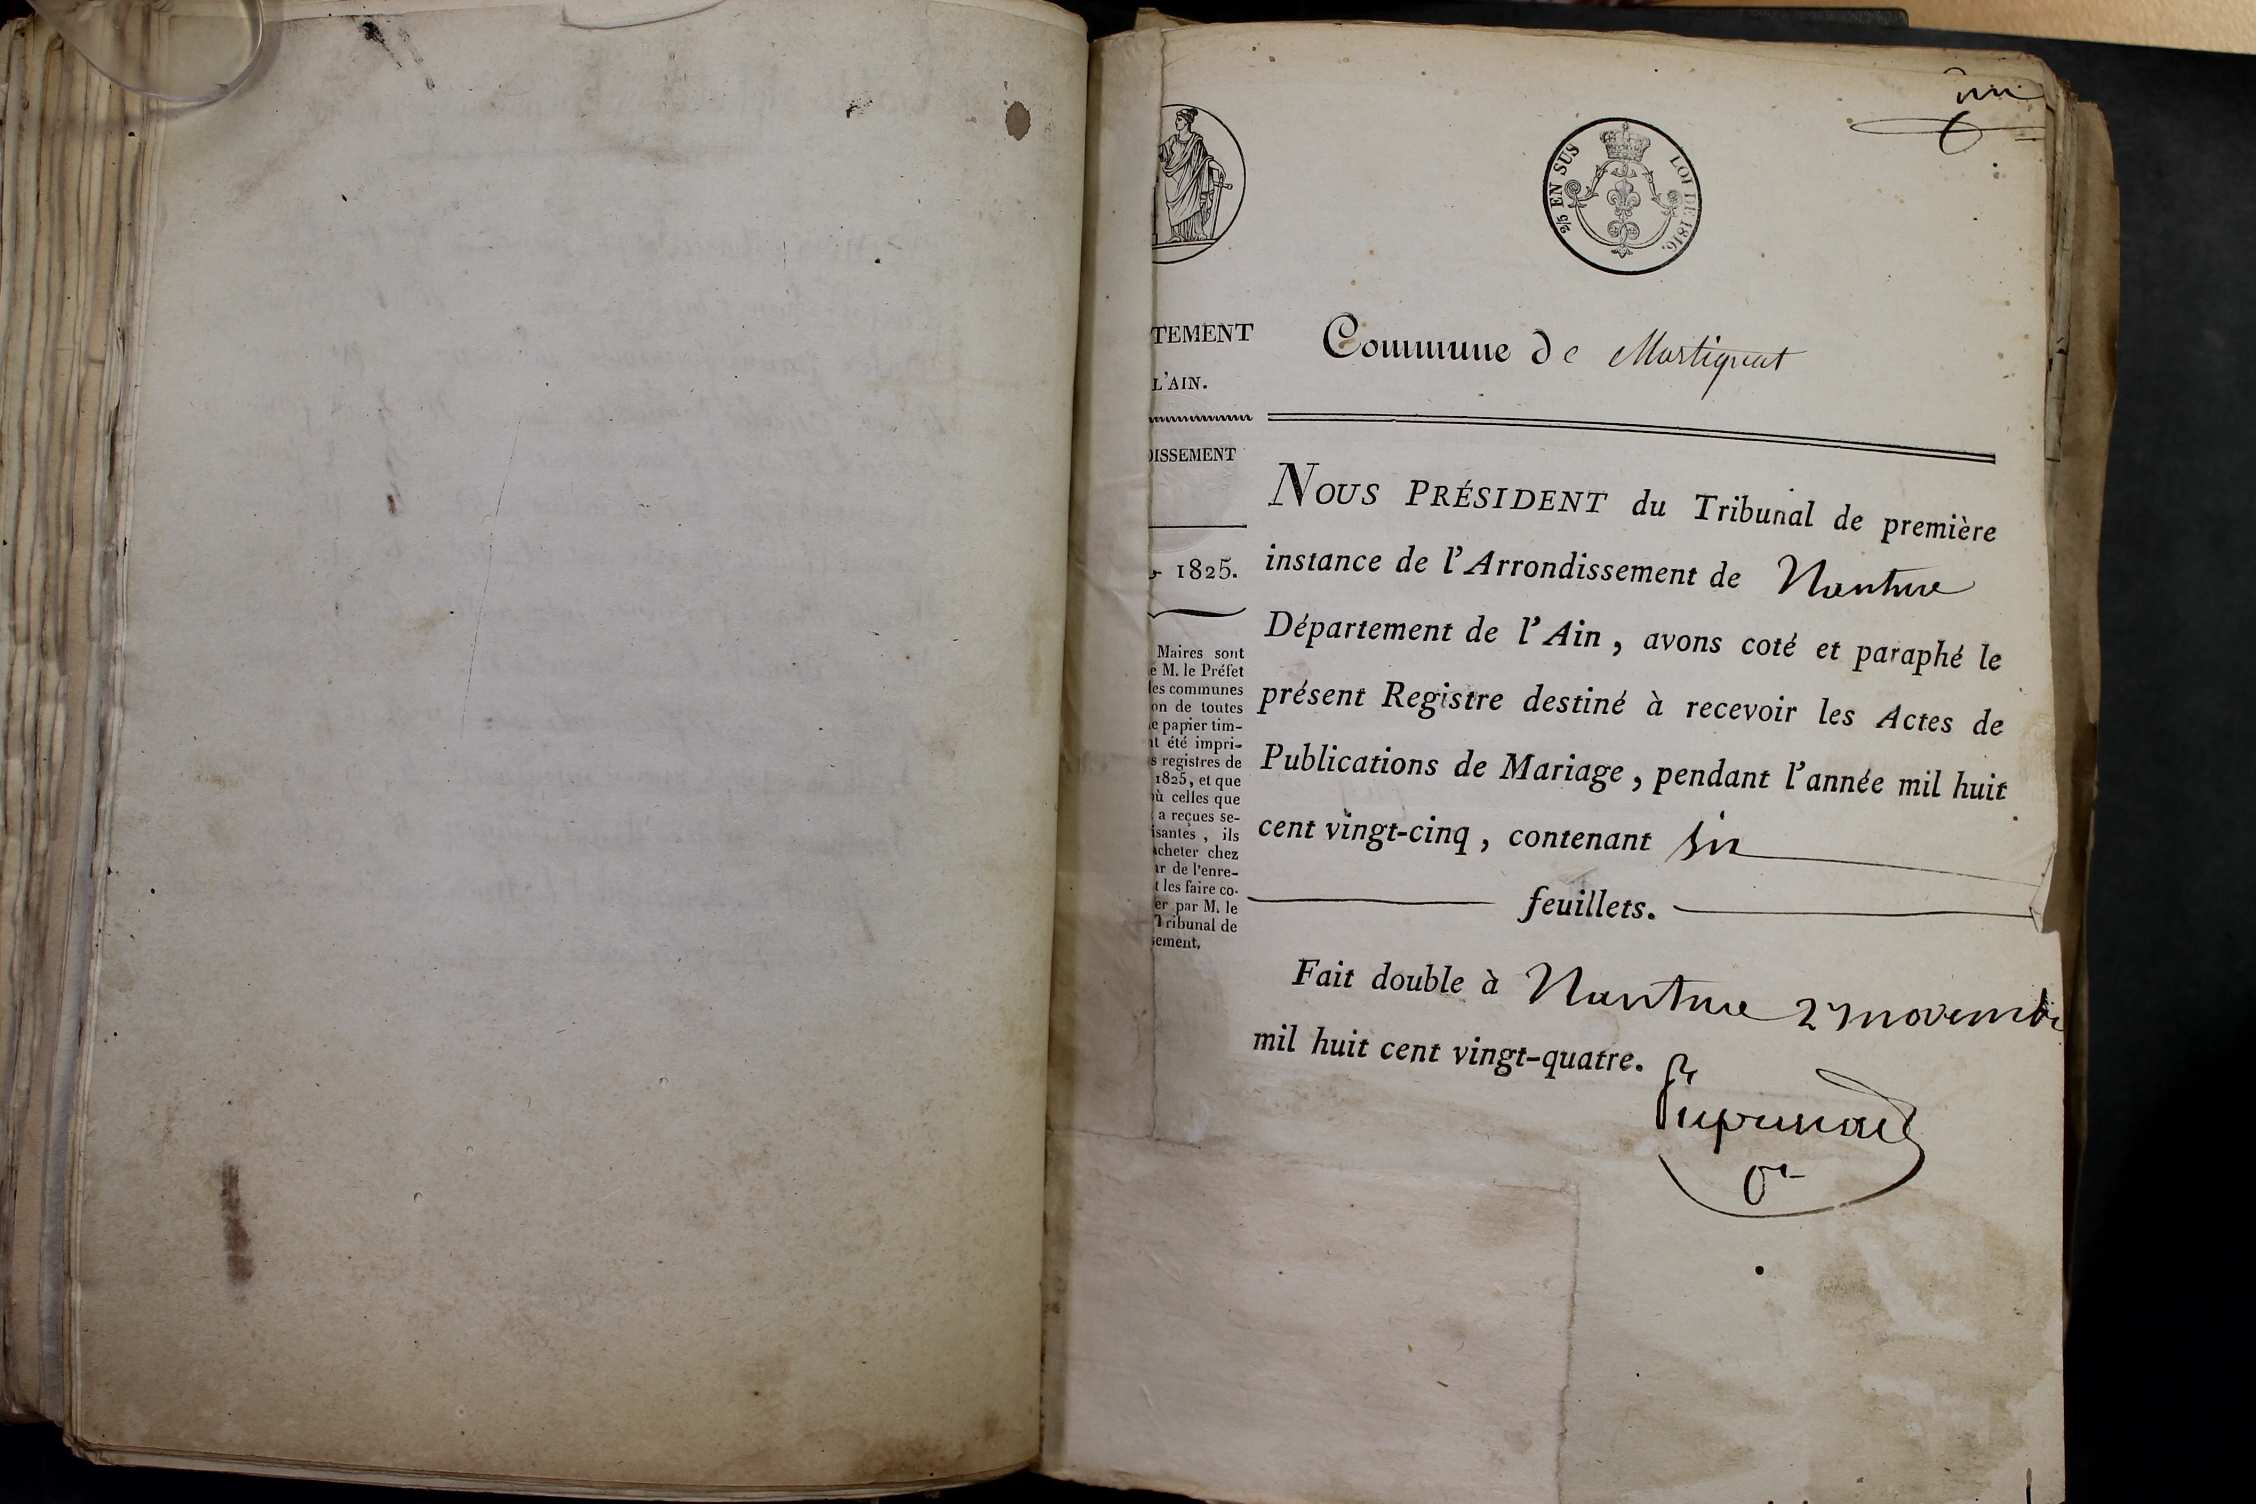 2/5 EN SUS
LOI DE 1816.
TEMENT
L'AIN.
DISSEMENT
1825.
Maires sont
e M. le Préfet
les communes
on de toutes
e papier tim-
nt été impri-
s registres de
1825, et que
où celles que
a reçues se-
isantes, ils
acheter chez
ur de l'enre-
t les faire co-
er par M. le
Tribunal de
sement.
Commune de Martignat
NOUS PRÉSIDENT du Tribunal de première
instance de l'Arrondissement de Nantua
Département de l'Ain, avons coté et paraphé le
présent Registre destiné à recevoir les Actes de
Publications de Mariage, pendant l'année mil huit
cent vingt-cinq, contenant six
feuillets.
Fait double à Nantua 27 novembre
mil huit cent vingt-quatre.